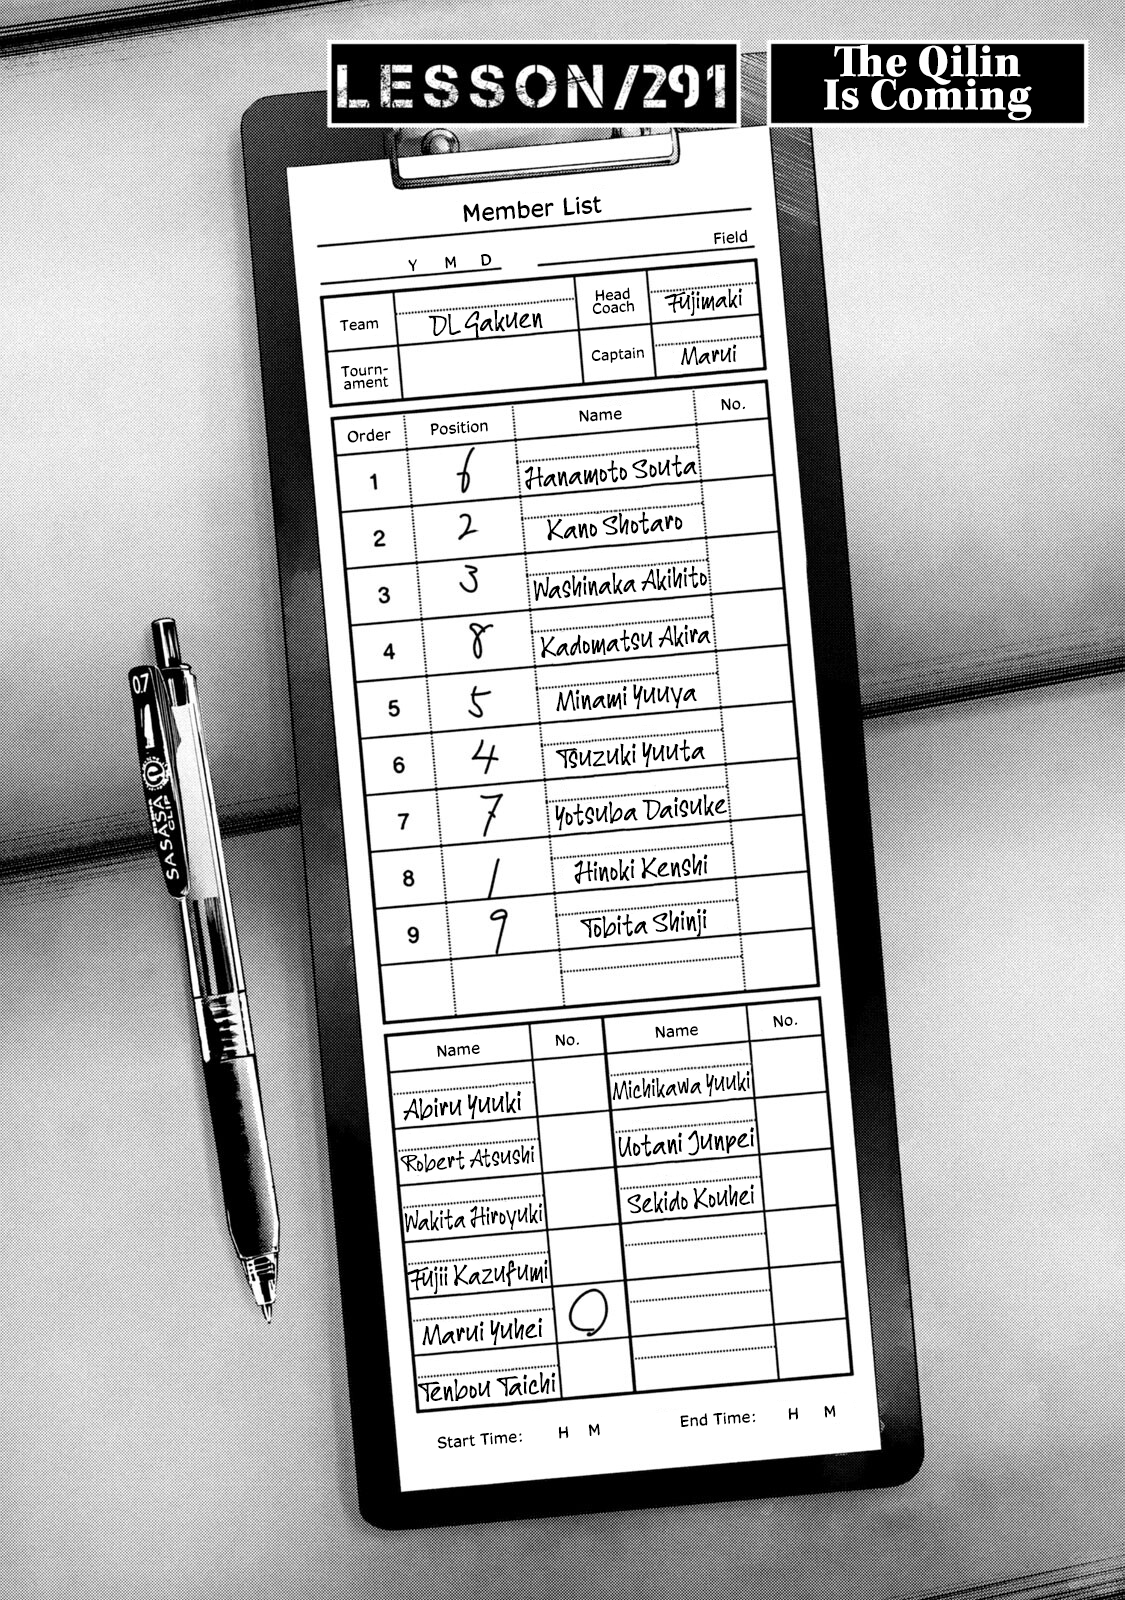 LESSON/291
The Qilin
Is Coming
Member List
Y M D
Field
Team
DL Gakuen
Head
Coach
Fujimaki
Tourn-
ament
Captain
Marui
Order Position Name No.
1 6 Hanamoto Souta
2 2 Kano Shotaro
3 3 Washinaka Akihito
4 8 Kadomatsu Akira
5 5 Minami Yuuya
6 4 Tsuzuki Yuuta
7 7 Yotsuba Daisuke
8 1 Hinoki Kenshi
9 9 Tobita Shinji
Name No. Name No.
Abiru Yuuki Michikawa Yuuki
Robert Atsushi Uotani Junpei
Wakita Hiroyuki Sekido Kouhei
Fujii Kazufumi
Marui Yuhei
Tenbou Taichi
Start Time: H M End Time: H M
0.7
SASASA
CLIP